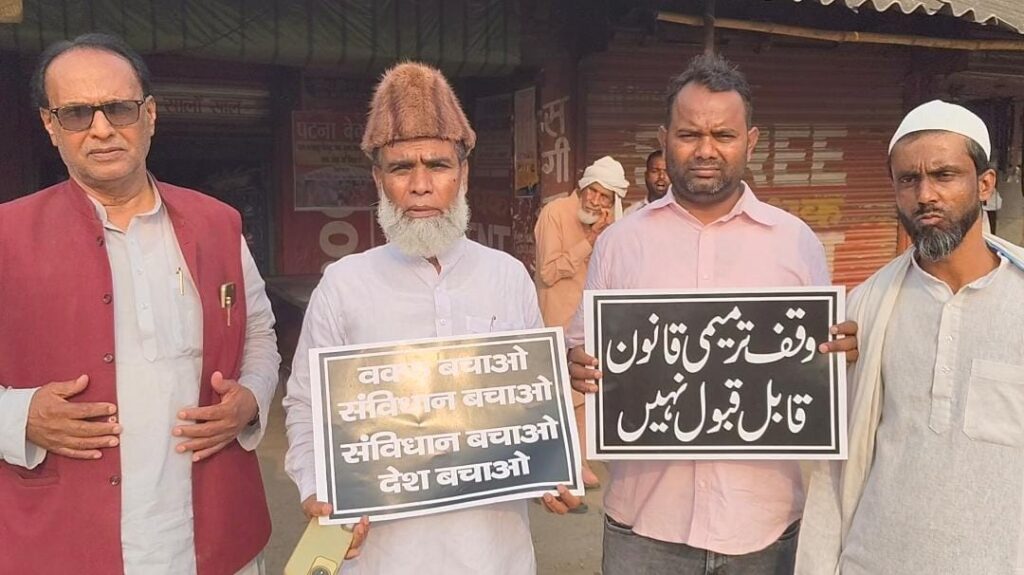 वक्फ बचाओ
संविधान बचाओ
संविधान बचाओ
देश बचाओ
وقف ترمیمی قانون
قابل قبول نہیں
पटना